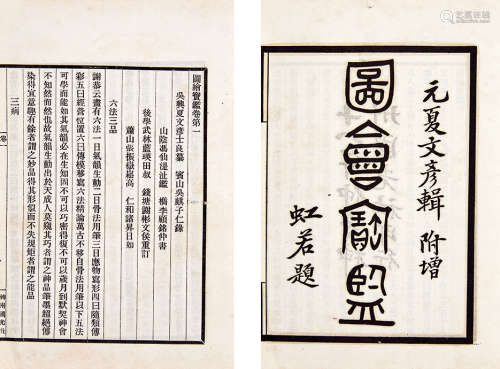 圖繪寶鑑卷第一
吳興夏文彥士良纂　賓山吳麒子仁錄
山陰馮仙湜沚鑑　檇李顧銘仲書
後學武林藍瑛田叔　錢塘謝彬文侯重訂
蕭山張振嶽嵩高　仁和諸昇日如
六法三品
謝赫云畫有六法一曰氣韻生動二曰骨法用筆三曰應物寫形四曰隨類傅
彩五曰經營位置六曰傳模移寫六法精論萬古不移自骨法用筆以下五法
可學而能如其氣韻必在生知固不可以巧密得復不可以歲月到默契神會
不知然而然也故氣韻生動出於天成人莫窺其巧者謂之神品筆墨超絕傅
染得宜意趣有餘者謂之妙品得其形似而不失規矩者謂之能品
三病
元夏文彥輯 附增
圖會寶鑑
虹若題
艺典中国